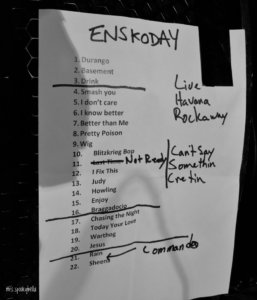 ENSKODAY
1. Durango
2. Basement
3. Drink
4. Smash you
5. I don't care
6. I know better
7. Better than Me
8. Pretty Poison
9. Wig
10. Blitzkrieg Bop
11. Last Time Not Ready
12. I Fix This
13. Judy
14. Howling
15. Enjoy
16. Braggadocio
17. Chasing the Night
18. Today Your Love
19. Warthog
20. Jesus
21. Rain
22. Sheena
Live
Havana
Rockaway
Can't Say
Somethin
Cretin
Commando